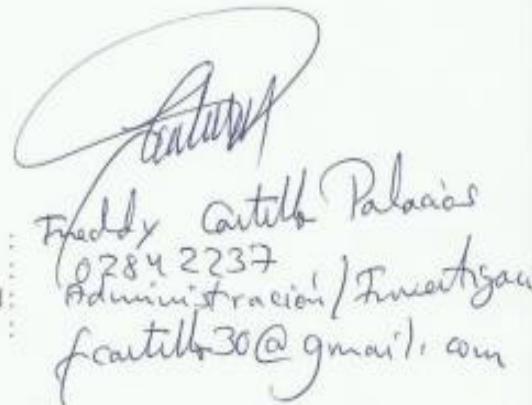 Freddy Castillo Palacios
02842237
Administración / Investigac
fcastillo30@gmail.com